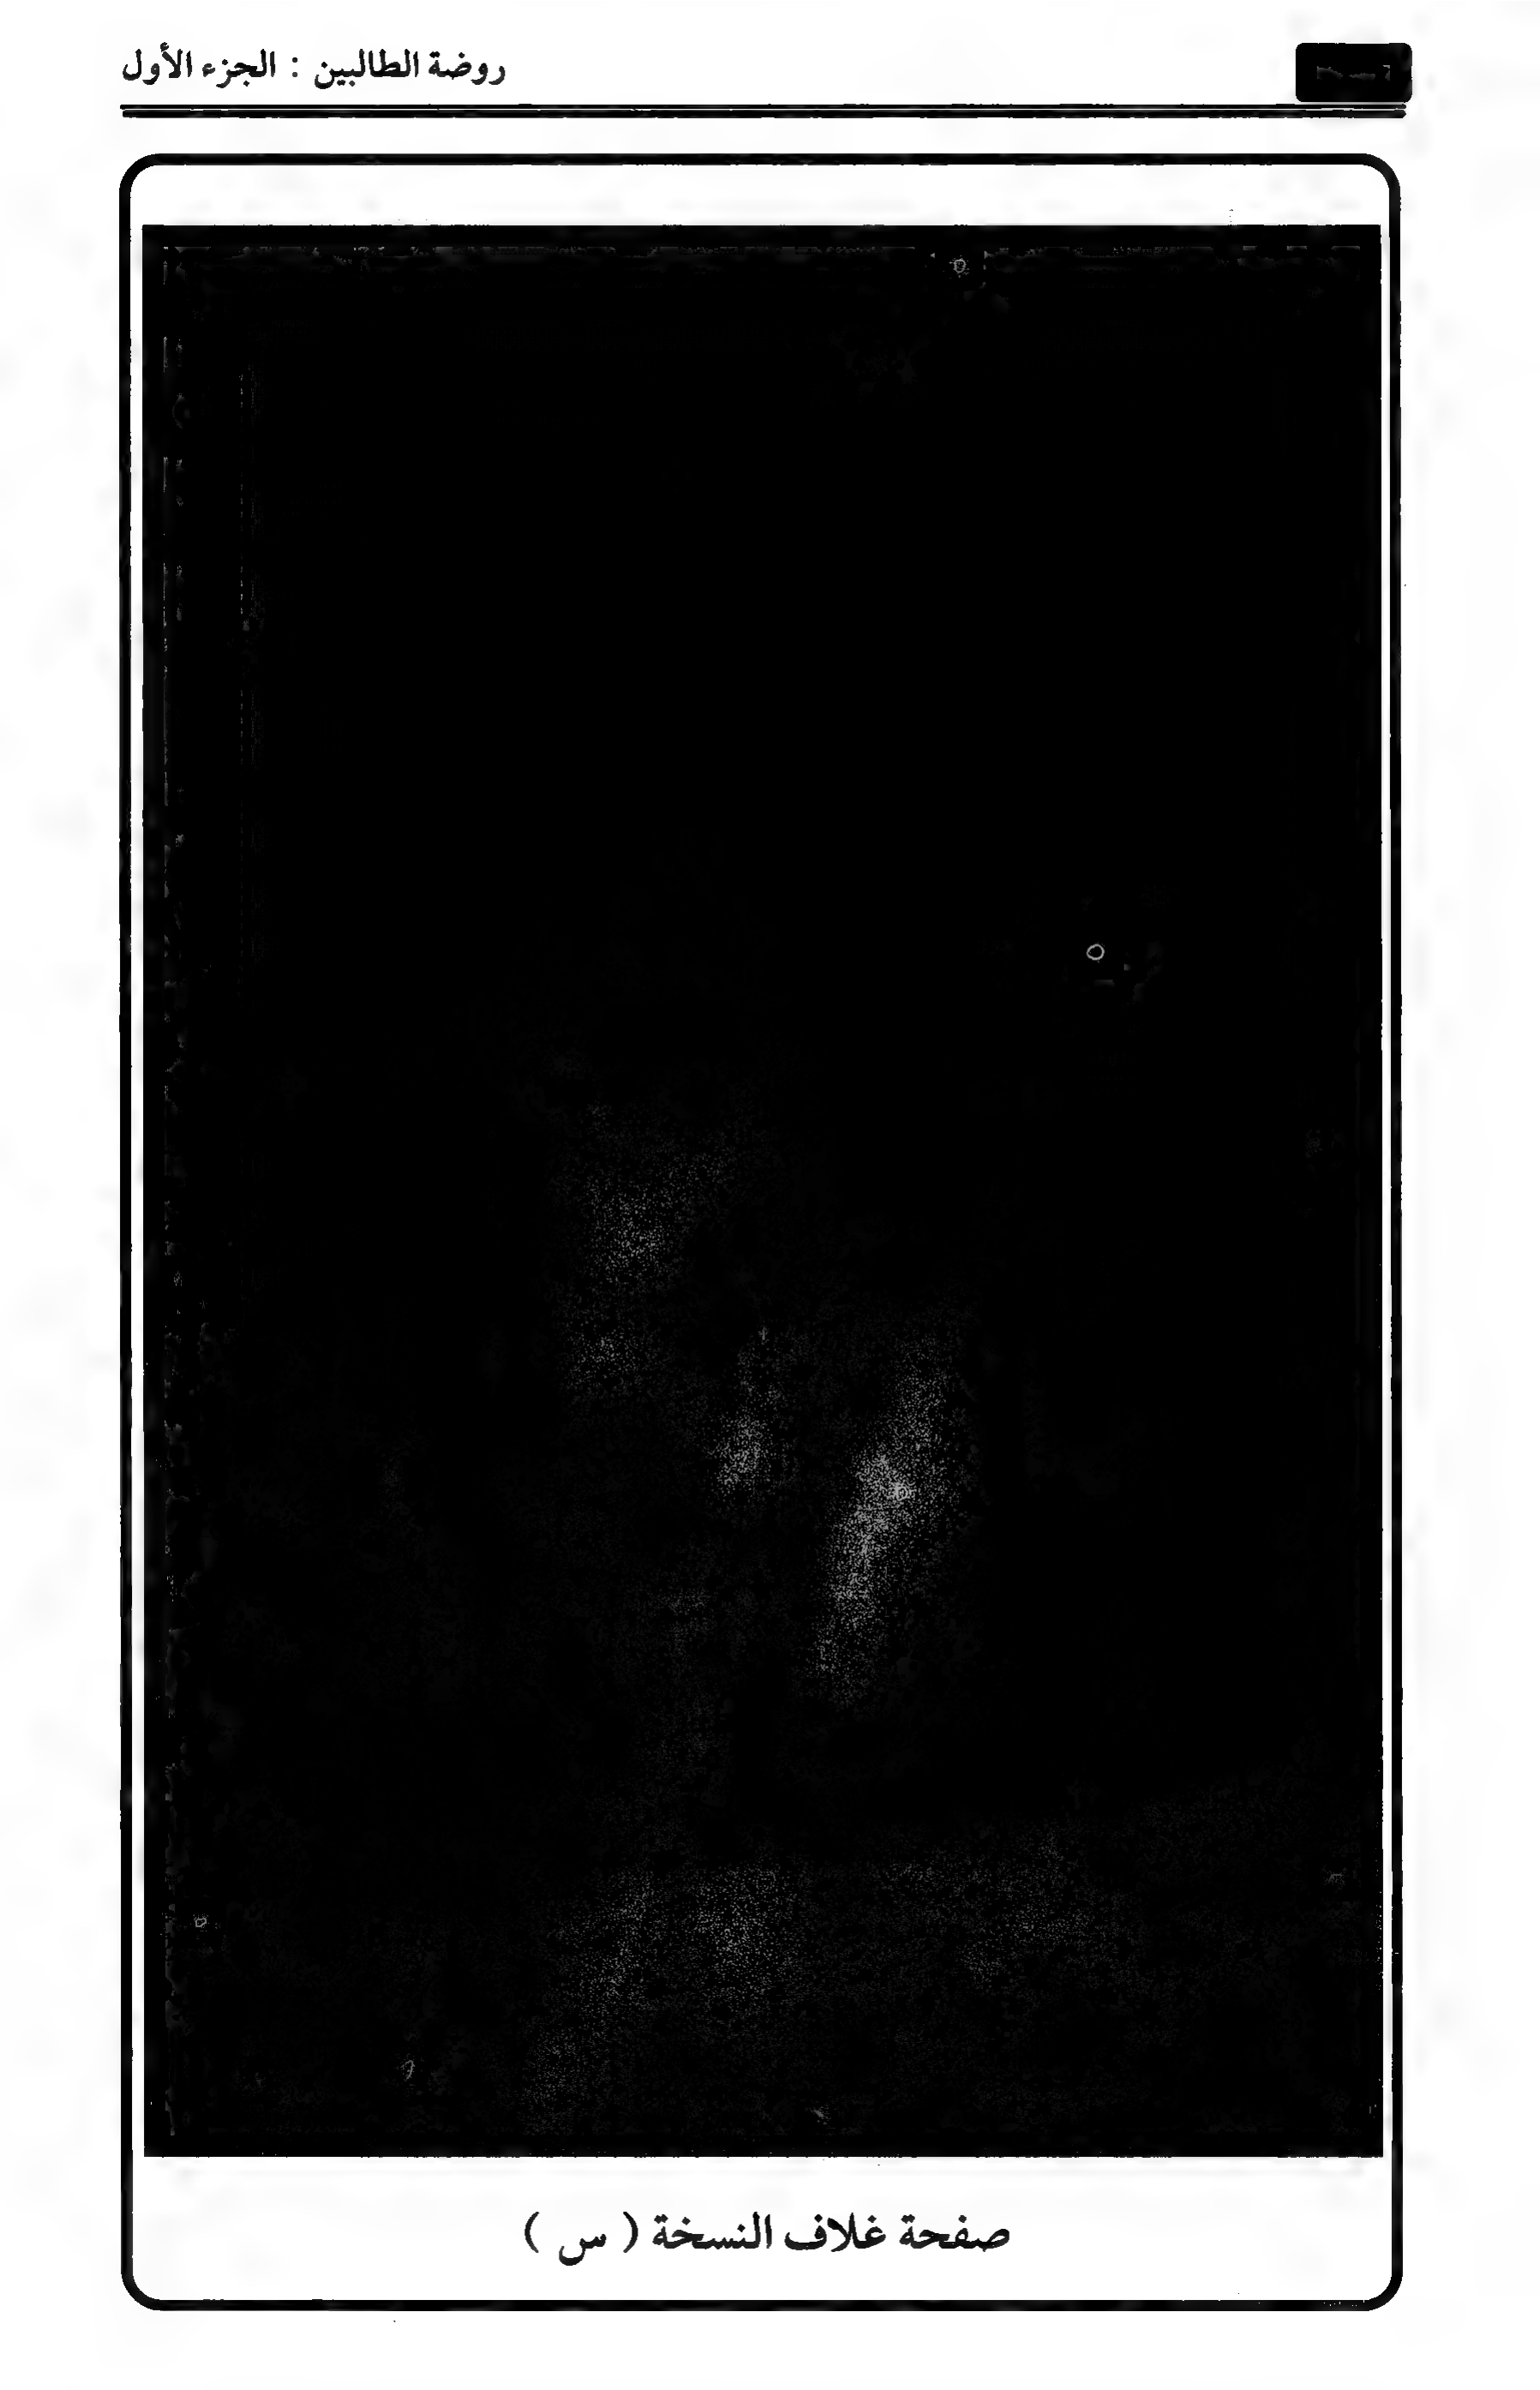 روضة الطالبين : الجزء الأول
صفحة غلاف النسخة ( س )